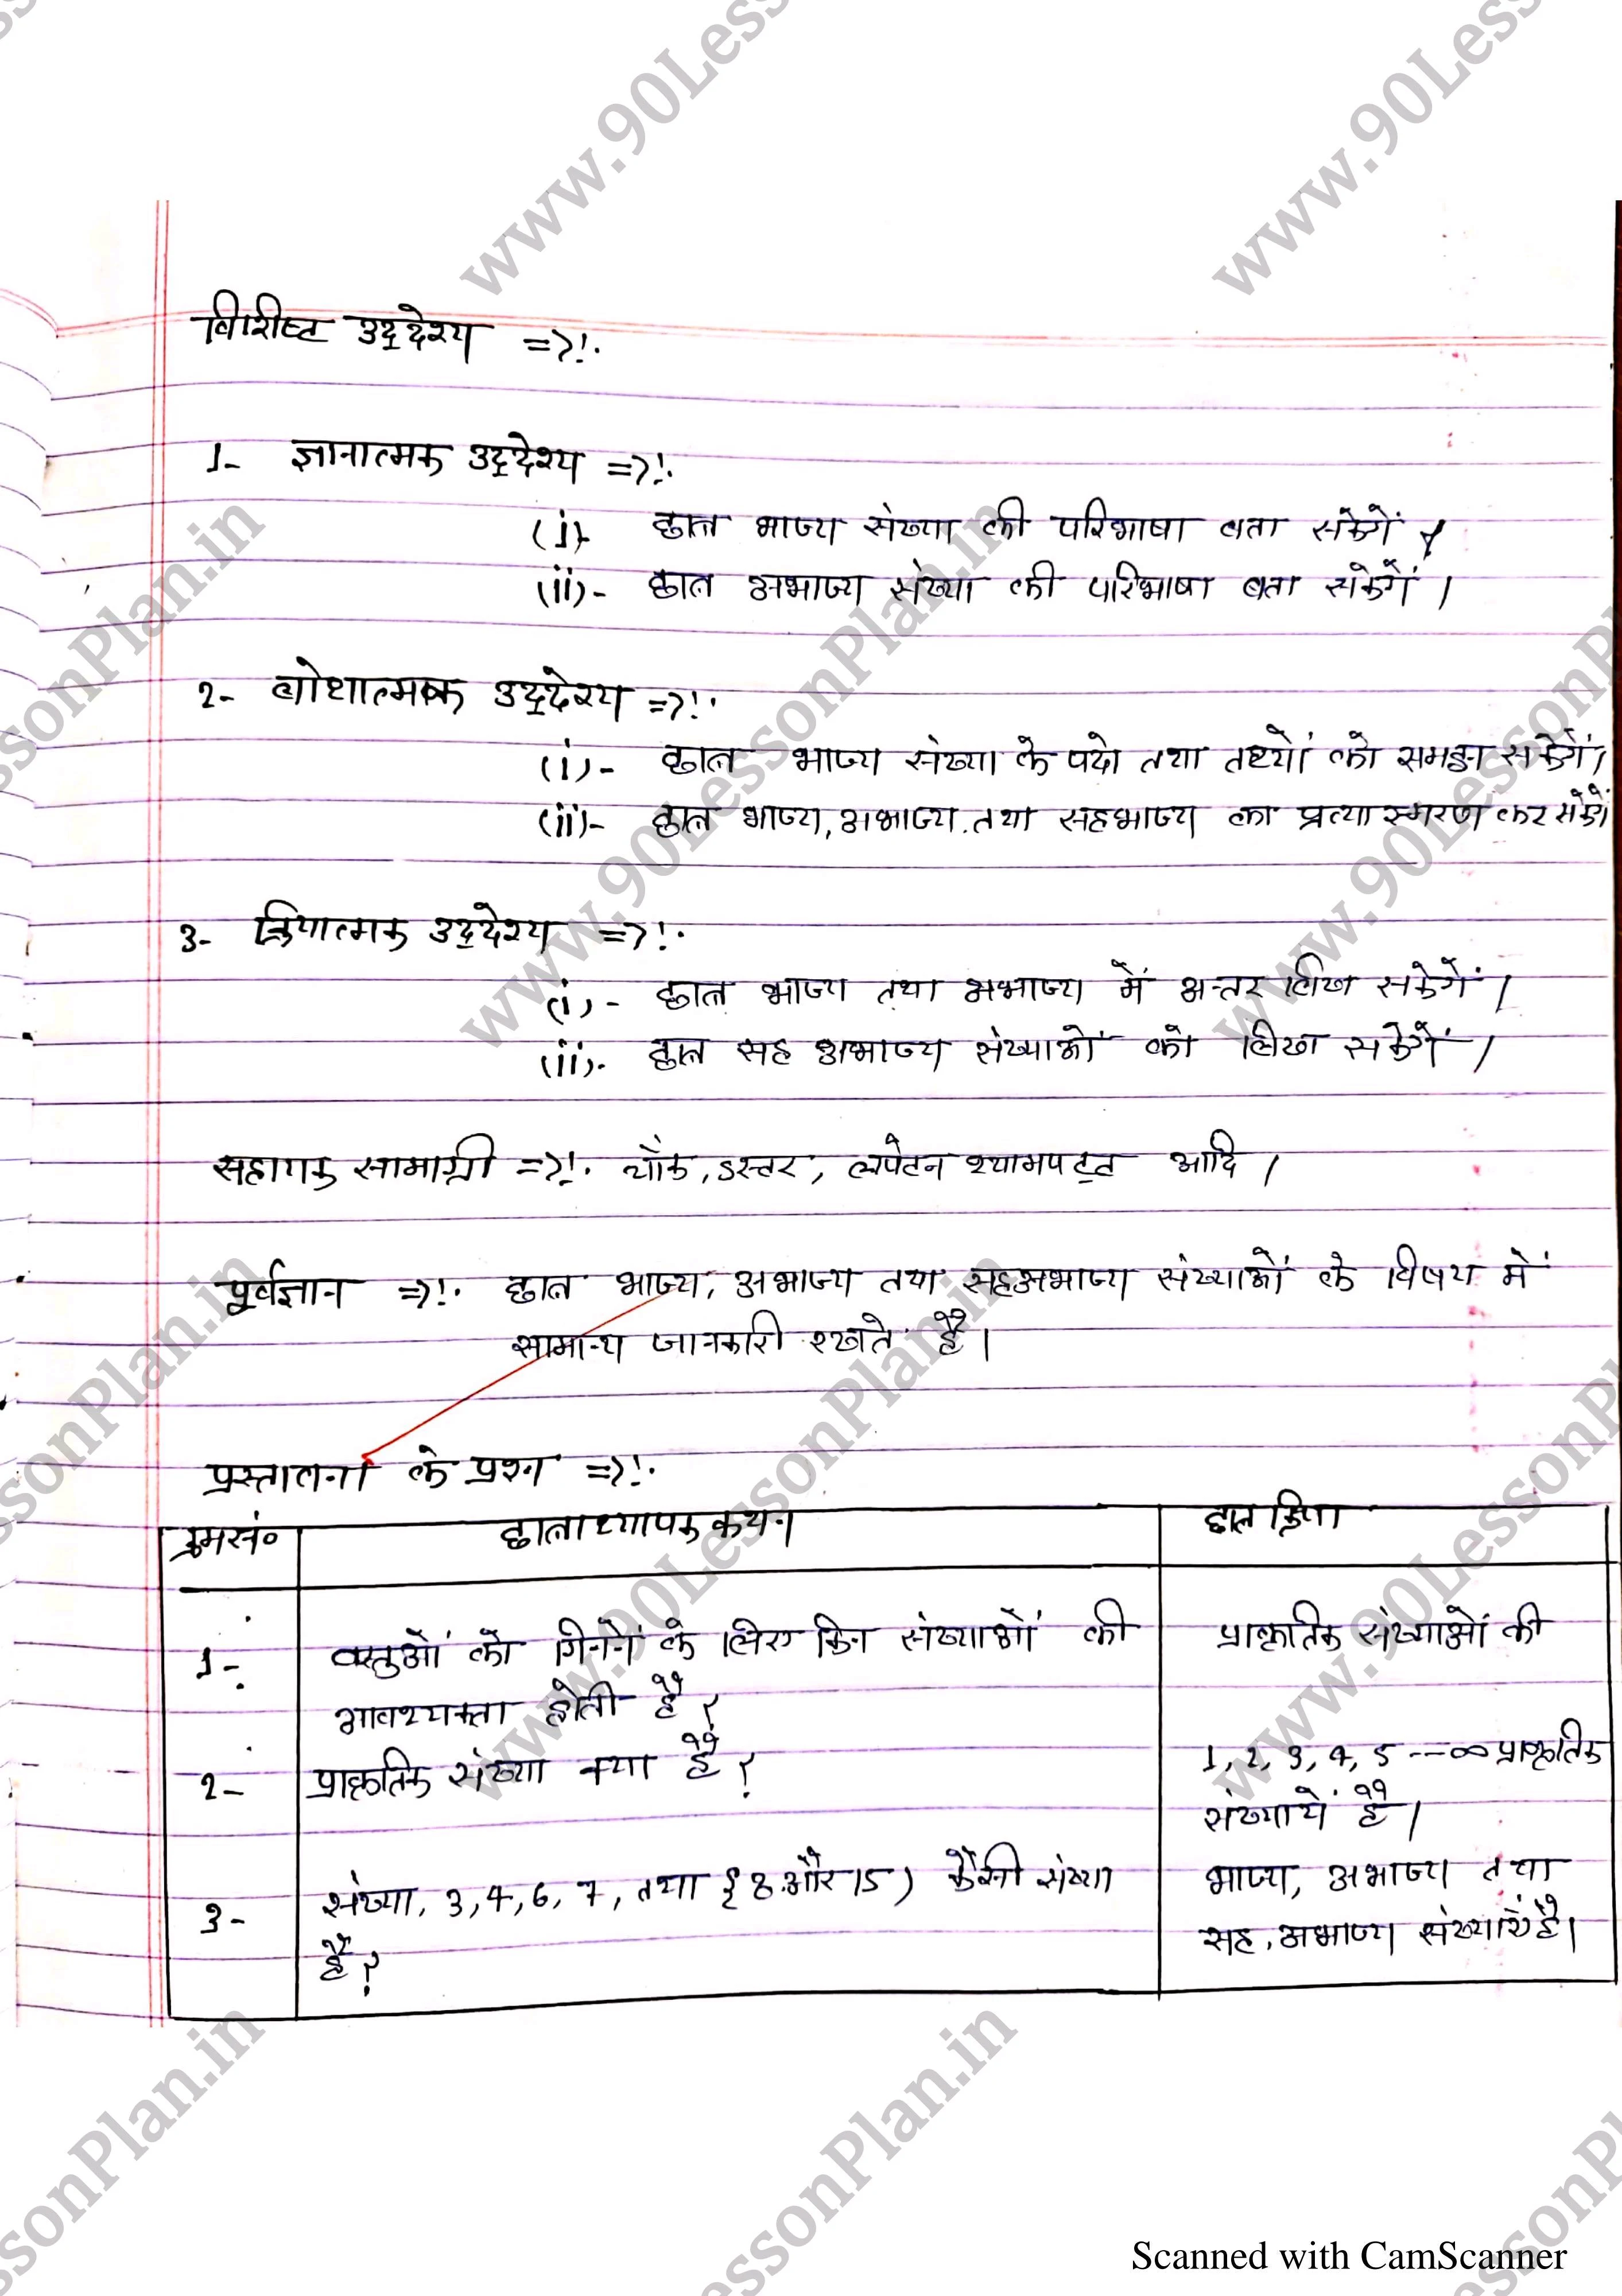 विशिष्ट उद्देश्य =>!.
1- ज्ञानात्मक उद्देश्य =>!.
(i)- छात्र भाज्य संख्या की परिभाषा बता सकेगें।
(ii)- छात्र अभाज्य संख्या की परिभाषा बता सकेगें।
2- बोधात्मक उद्देश्य =>!.
(i)- छात्र भाज्य संख्या के पदो तथा तथ्यों को समझ सकेगें।
(ii)- छात्र भाज्य, अभाज्य. तथा सहभाज्य का प्रत्यास्मरण कर सकेगें
3- क्रियात्मक उद्देश्य =>!.
(i)- छात्र भाज्य तथा अभाज्य में अन्तर लिख सकेगें।
(ii)- छात्र सह अभाज्य संख्याओं को लिख सकेगें।
सहायक सामाग्री =>!. चॉक, डस्टर, लपेटन श्यामपट्ट आदि।
पूर्वज्ञान =>!. छात्र भाज्य, अभाज्य तथा सहअभाज्य संख्याओं के विषय में
सामान्य जानकारी रखते है।
प्रस्तावना के प्रश्न =>!.
क्रमसं० छात्राध्यापक कथन छात्र क्रिया
1- वस्तुओं को गिनने के लिए किन संख्याओं की प्राकृतिक संख्याओं की
आवश्यकता होती है?
2- प्राकृतिक संख्या क्या है? 1, 2, 3, 4, 5 ---∞ प्राकृतिक
संख्यायें है।
3- संख्या, 3, 4, 6, 7, तथा {8 और 15) कैसी संख्या भाज्य, अभाज्य तथा
है? सह, अभाज्य संख्याएं है।
www.90LessonPlan.in
Scanned with CamScanner